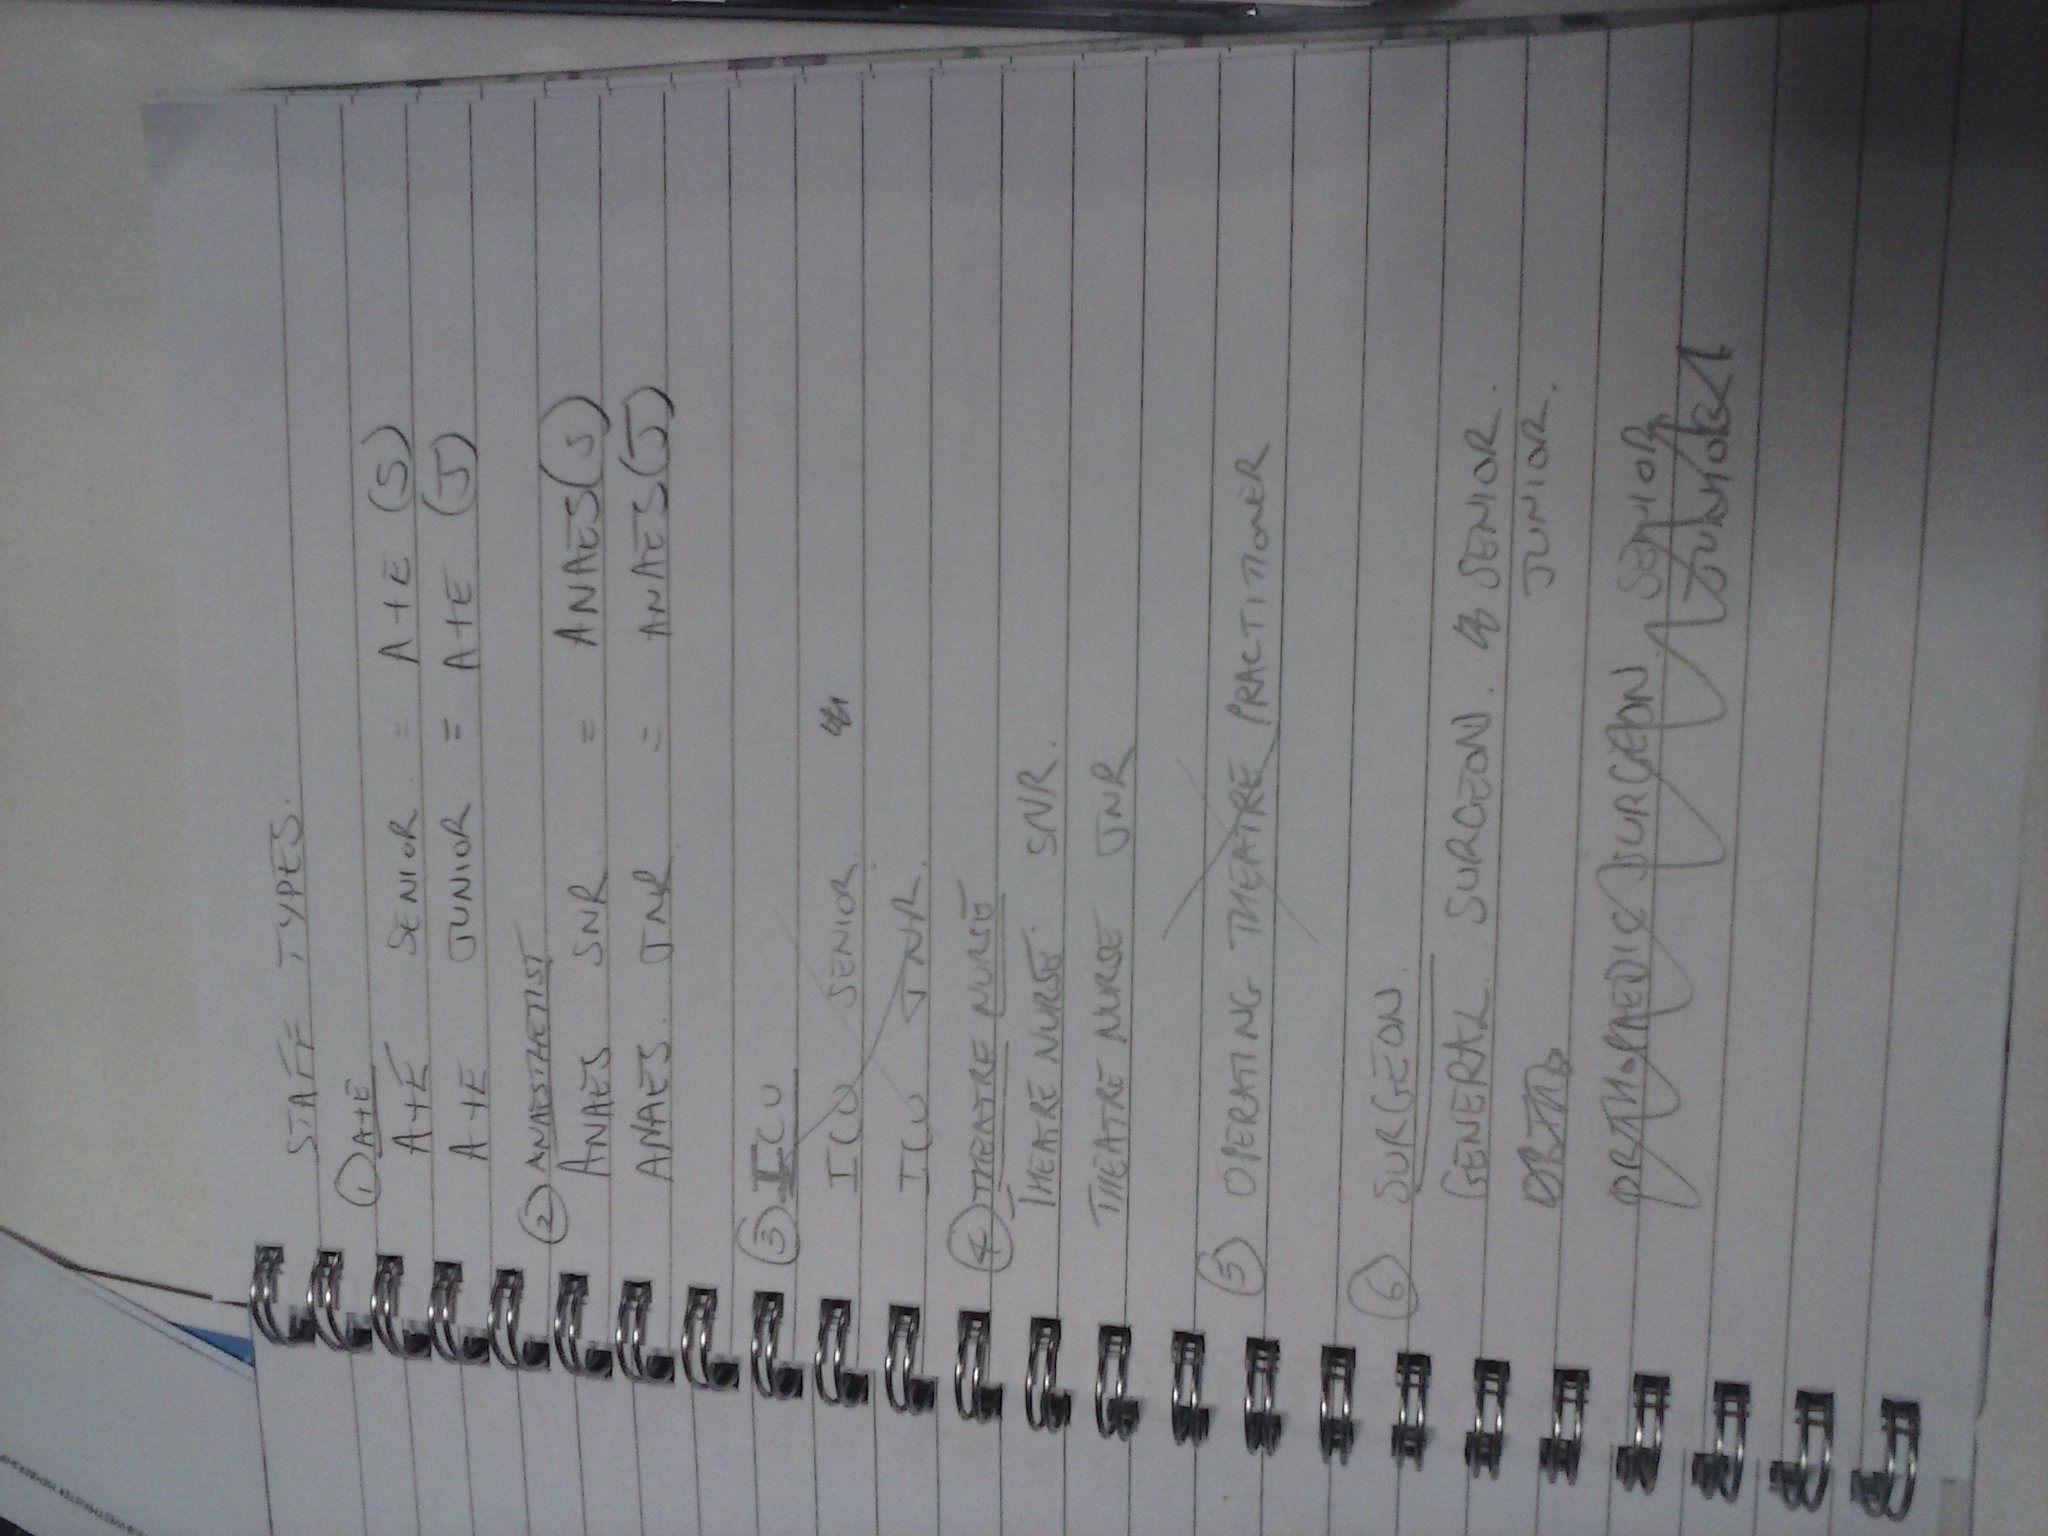 STAFF TYPES.
① A+E
A+E SENIOR = A+E (S)
A+E JUNIOR = A+E (J)
② ANAESTHETIST
ANAES SNR = ANAES (S)
ANAES. JNR = ANAES (J)
③ ICU
ICU SENIOR.
ICU JNR.
④ THEATRE NURSE
THEATRE NURSE. SNR.
THEATRE NURSE JNR
⑤ OPERATING THEATRE PRACTITIONER
⑥ SURGEON.
GENERAL SURGEON. SENIOR.
JUNIOR.
ORTHOPAEDIC SURGEON. SENIOR
JUNIOR